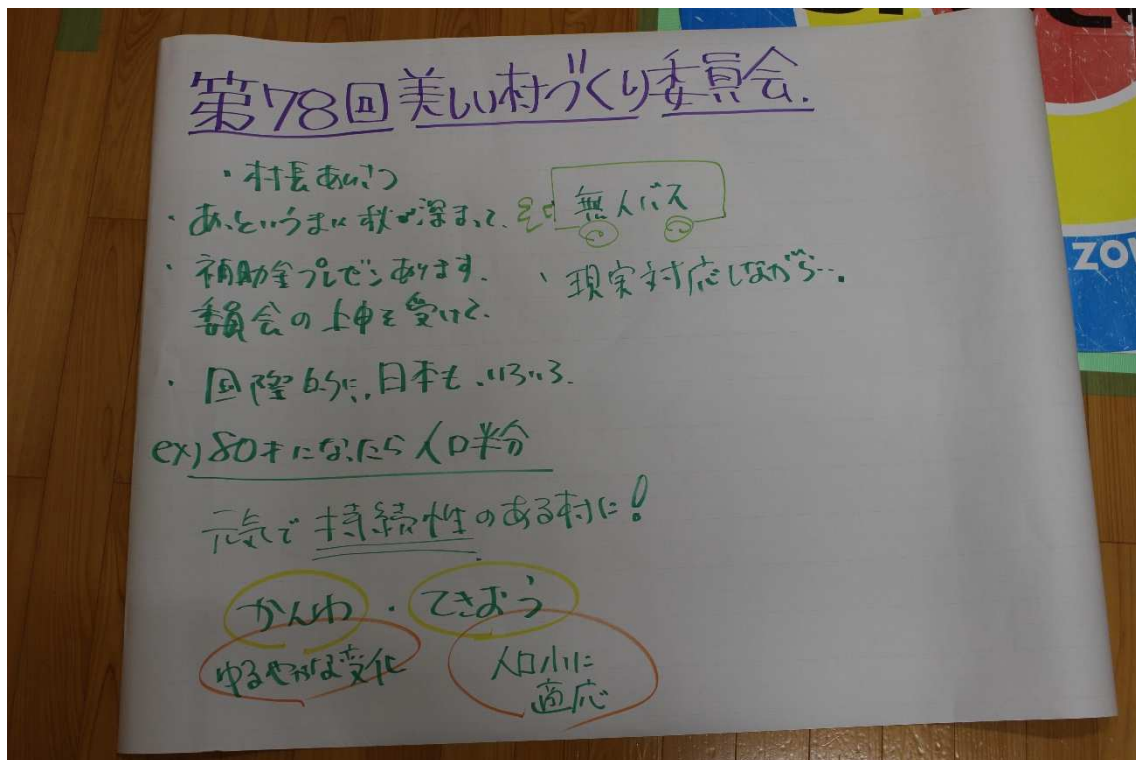 第78回 美しい村づくり委員会.
・村長あいさつ
・あっというまに秋が深まって.
無人バス
・補助金プレゼンあります.
委員会の上申を受けて.
・現実対応しながら….
・国際的に.日本も.いろいろ.
ex) 80才になったら人口半分
元気で持続性のある村に!
かんわ・てきおう
ゆるやかな変化
人口小に
適応
ZO